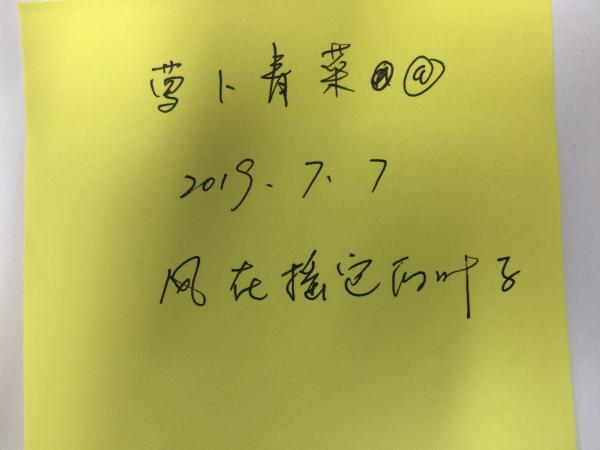 萝卜青菜@
2019.7.7
风在摇它的叶子